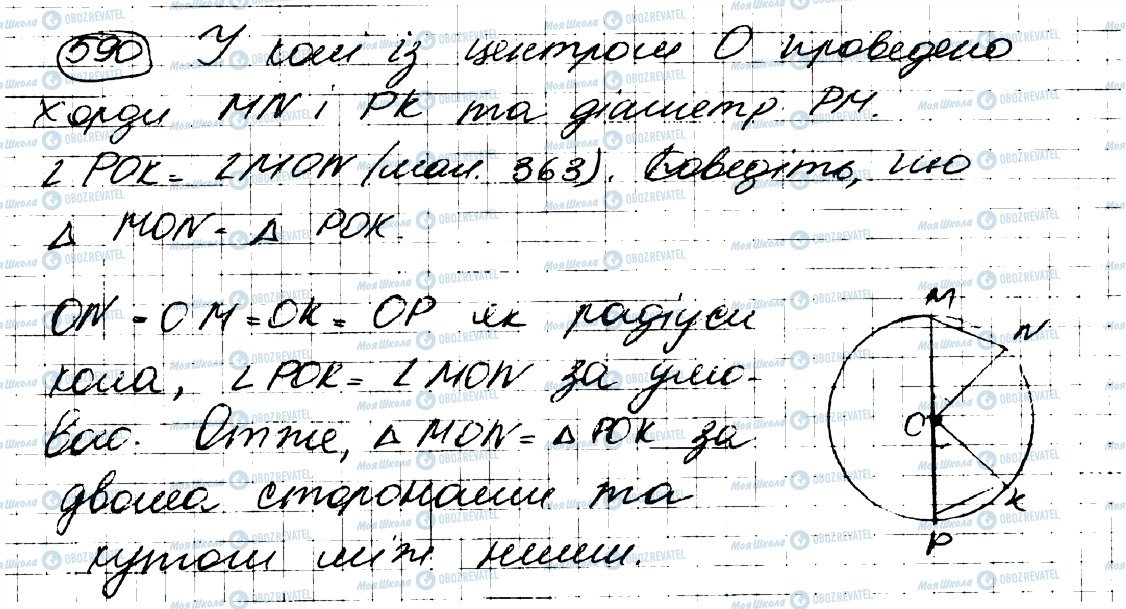 590 У колі із центром О проведено
хорди MN і PK та діаметр PM.
∠ POK = ∠MON (мал. 363). Доведіть, що
△ MON = △ POK.
ON = OM = OK = OP як радіуси
кола, ∠ POK = ∠ MON за умо-
вою. Отже, △ MON = △ POK за
двома сторонами та
кутом між ними.
M
N
O
K
P
Моя Школа OBOZREVATEL